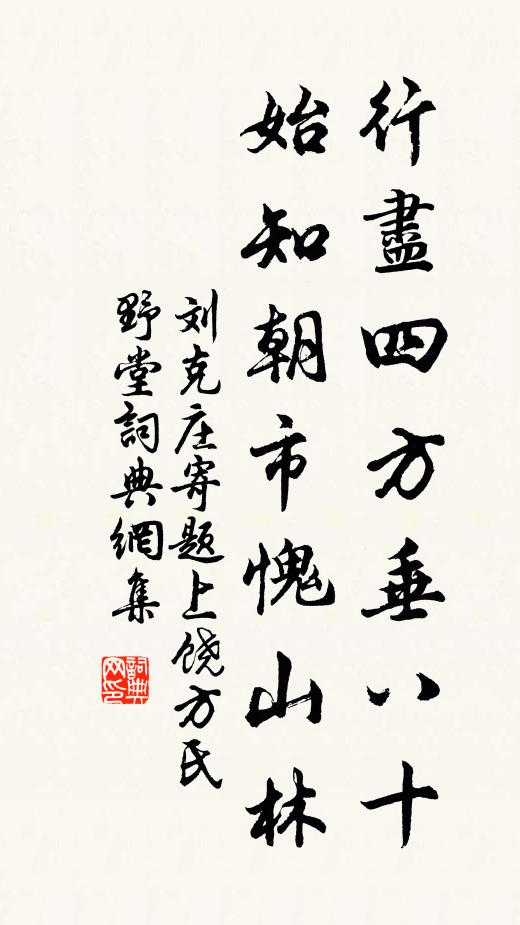 行盡四方垂八十
始知朝市愧山林
刘克庄寄题上饶方氏
野堂詞典網集
詞典网印